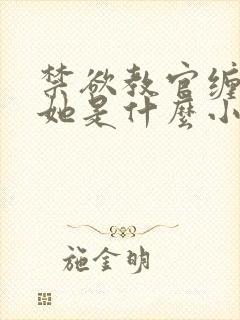 禁欲教官缠
她是什麼小
施金明